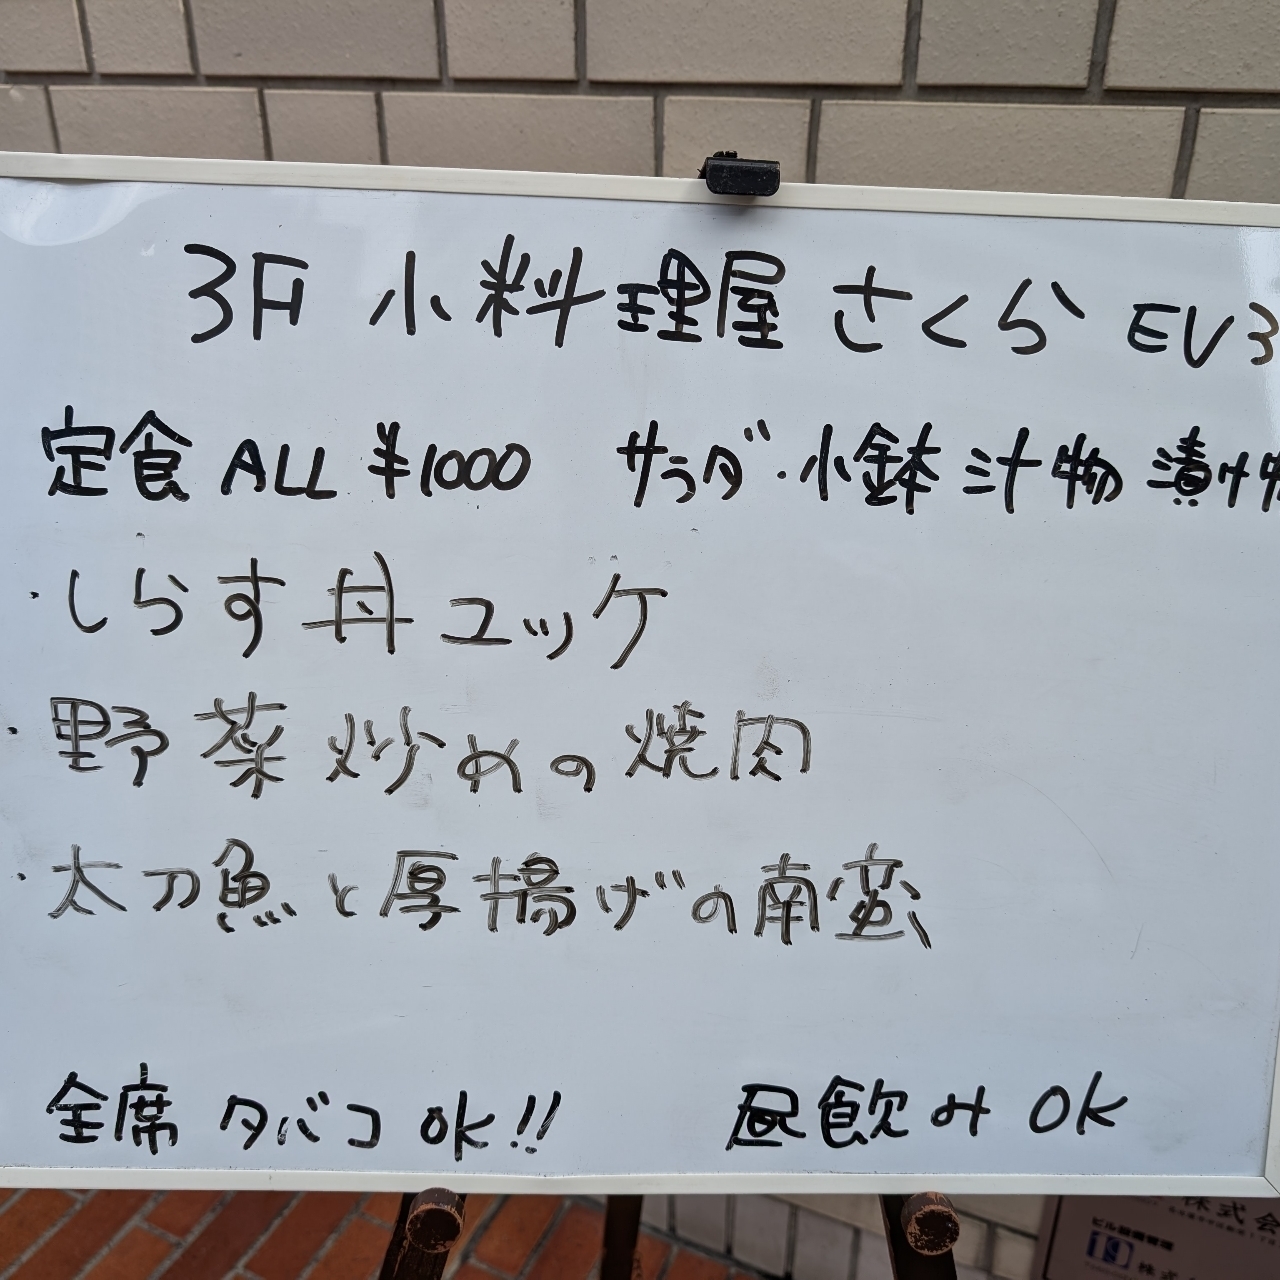 3F 小料理屋 さくら EV3
定食 ALL ¥1000 サラダ・小鉢 汁物 漬け物
・しらす丼ユッケ
・野菜炒めの焼肉
・太刀魚と厚揚げの南蛮
全席 タバコ OK!! 昼飲み OK
株式会
ビル設備管理
株式